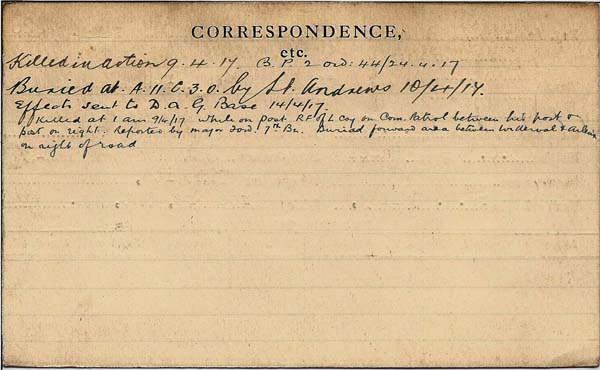 CORRESPONDENCE,
etc.
Killed in action 9.4.17. B.P. 2 ord: 44/24.4.17
Buried at. A.11.C.3.0. by St. Andrews 10/4/17.
Effects sent to D.A.G. Base 14/4/17.
Killed at 1 am 9/4/17 while on post RF of L Coy on Com. Patrol between his post &
post on right. Reported by major 7th Bn. Buried forward area between &
on right of road